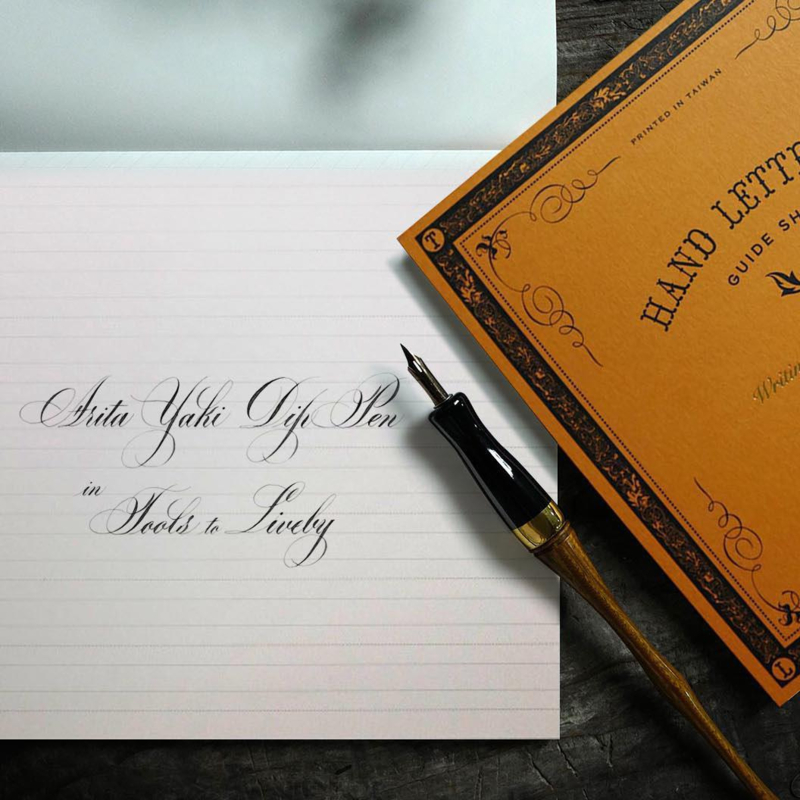 Arita Yaki Dip Pen
in
Tools to Liveby
PRINTED IN TAIWAN
HAND LETTE
GUIDE SH
Writin
T
L